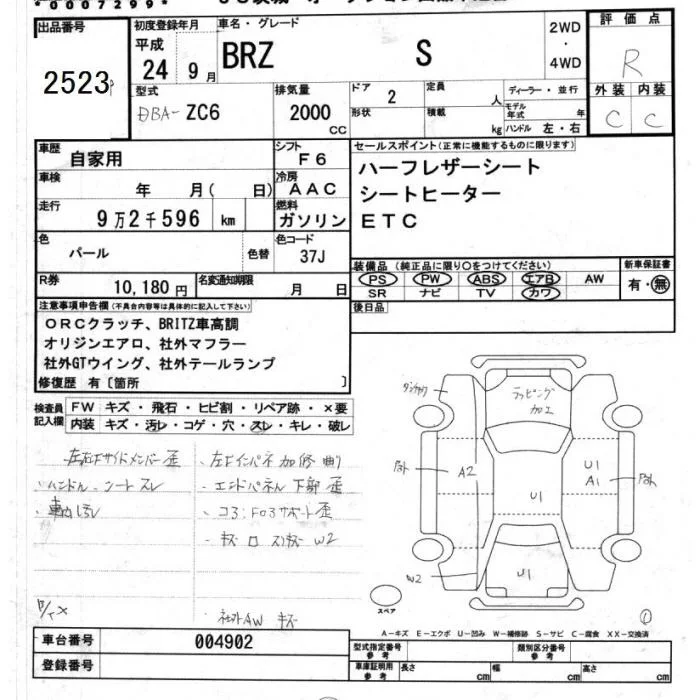 *0007299*
出品番号
2523
初度登録年月
平成
24 9月
車名・グレード
BRZ S
2WD
・
4WD
評価点
R
外装 内装
C C
型式
DBA- ZC6
排気量
2000
CC
ドア
2
形状
定員
人
積載
kg
ディーラー・並行
モデル年式 年
ハンドル 左・右
車歴
自家用
シフト
F6
車検
年 月( 日)
冷房
AAC
走行
9万2千596 km
燃料
ガソリン
色
パール
色替
色コード
37J
R券
10,180円
名変通知期限
月 日
セールスポイント(正常に機能するものに限ります)
ハーフレザーシート
シートヒーター
ETC
装備品(純正品に限り○をつけてください)
PS PW ABS エアB AW
SR ナビ TV カワ
新車保証書
有・無
後日品
注意事項申告欄(不具合内容等は具体的に記入して下さい)
ORCクラッチ、BRITZ車高調
オリジンエアロ、社外マフラー
社外GTウイング、社外テールランプ
修復歴 有〔箇所 〕
検査員
記入欄
FW キズ・飛石・ヒビ割・リペア跡・×要
内装 キズ・汚レ・コゲ・穴・スレ・キレ・破レ
・ハンドル、シート スレ
・エンドパネル 下部 歪
・コアサポート 歪
・キズ W2
・社外AW キズ
ラッピング
加工
A2
U1
U1
A1
U1
W2
スペア
A-キズ E-エクボ U-凹み W-補修跡 S-サビ C-腐食 XX-交換済
車台番号
004902
登録番号
型式指定番号
参考
類別区分番号
参考
車庫証明用
参考
長さ cm
幅 cm
高さ cm